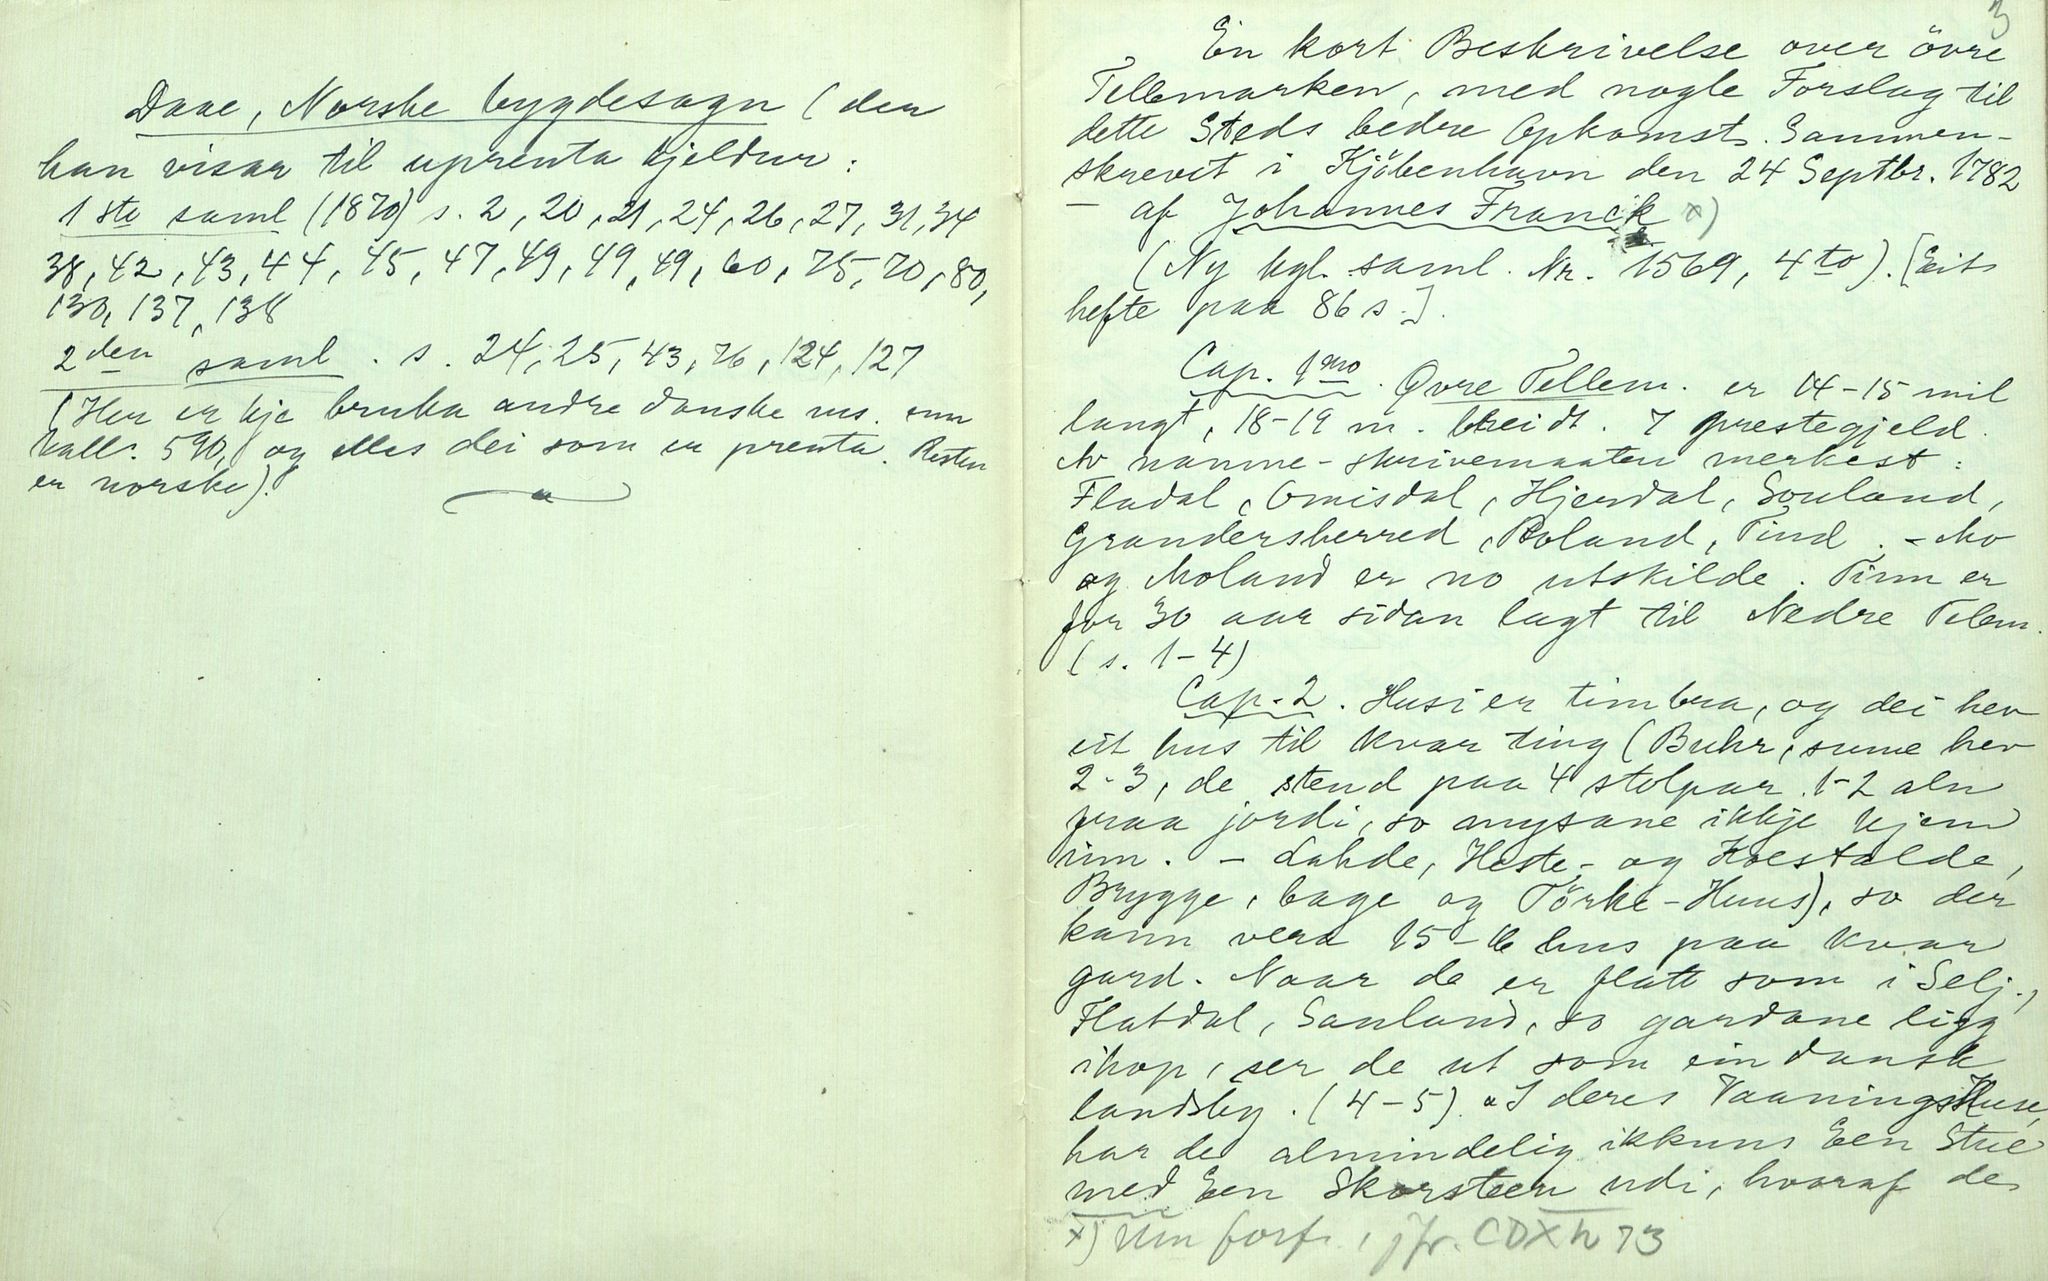 Daae, Norske bygdesagn (der
han visar til uprenta kjeldur:
1ste saml (1870) s. 2, 20, 21, 24, 26, 27, 31, 34
38, 42, 43, 44, 45, 47, 49, 49, 49, 60, 75, 70, 80,
130, 137, 138
2den saml. s. 24, 25, 43, 76, 124, 127
(Her er kje bruka andre danske ms. enn
kall. 590, og elles dei som er prenta. Resten
er norske).
3
En kort Beskrivelse over övre
Tellemarken, med nogle Forslag til
dette Steds bedre Opkomst. Sammen-
skrevit i Kjöbenhavn den 24 Septbr. 1782
– af Johannes Franck x)
(Ny kgl. saml. Nr. 1569, 4to). [Eit
hefte paa 86 s.].
Cap. 1mo. Øvre Tellem. er 14-15 mil
langt, 18-19 m. breidt. 7 prestegjeld.
Av namne-skrivemaaten merkest:
Fladal, Omisdal, Hjerdal, Souland,
Grandersherred, Roland, Tind. – Mo
og Moland er no utskilde. Tinn er
for 30 aar sidan lagt til Nedre Telem.
(s. 1-4)
Cap. 2. Husi er timbra, og dei hev
eit hus til kvar ting (Buhr, sume hev
2-3, de stend paa 4 stolpar 1-2 aln
fraa jordi, so mysane ikkje kjem
inn. – Lahde, Heste- og Koestalde,
Brygge, bage og Törke-Huus), so der
kann vera 15-16 hus paa kvar
gard. Naar de er flatt som i Selj.,
Flatdal, Sauland, so gardane ligg
ihop, ser de ut som ein dansk
landsby. (4-5). "I deres Vaaningshuse,
har de almindelig ikkuns Een Stue
med Een Skorsteen udi, hvoraf de
x) Um forf., jfr. CDXh 73